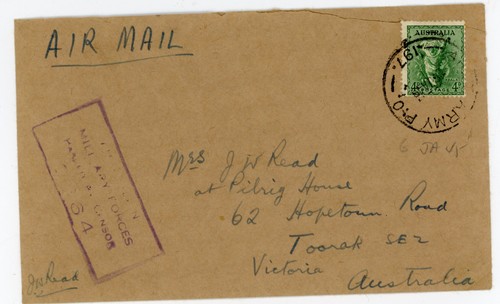 AIR MAIL
AUSTRALIA
ARMY P.O.
197
6 JA
MILITARY FORCES
CENSOR
54
Mrs J W Read
at Pilrig House
62 Hopetoun Road
Toorak SE2
Victoria
Australia
JW Read